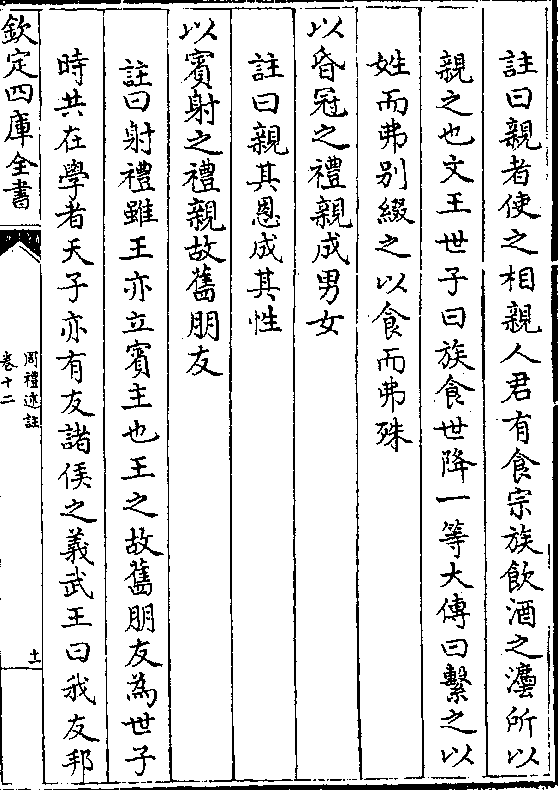 註曰親者使之相親人君有食宗族飲酒之禮所以
親之也文王世子曰族食世降一等大傳曰繫之以
姓而弗别綴之以食而弗殊
以昏冠之禮親成男女
註曰親其恩成其性
以賓射之禮親故舊朋友
註曰射禮雖王亦立賓主也王之故舊朋友為世子
時共在學者天子亦有友諸侯之義武王曰我友邦
欽定四庫全書
周禮述註
卷十二
十一